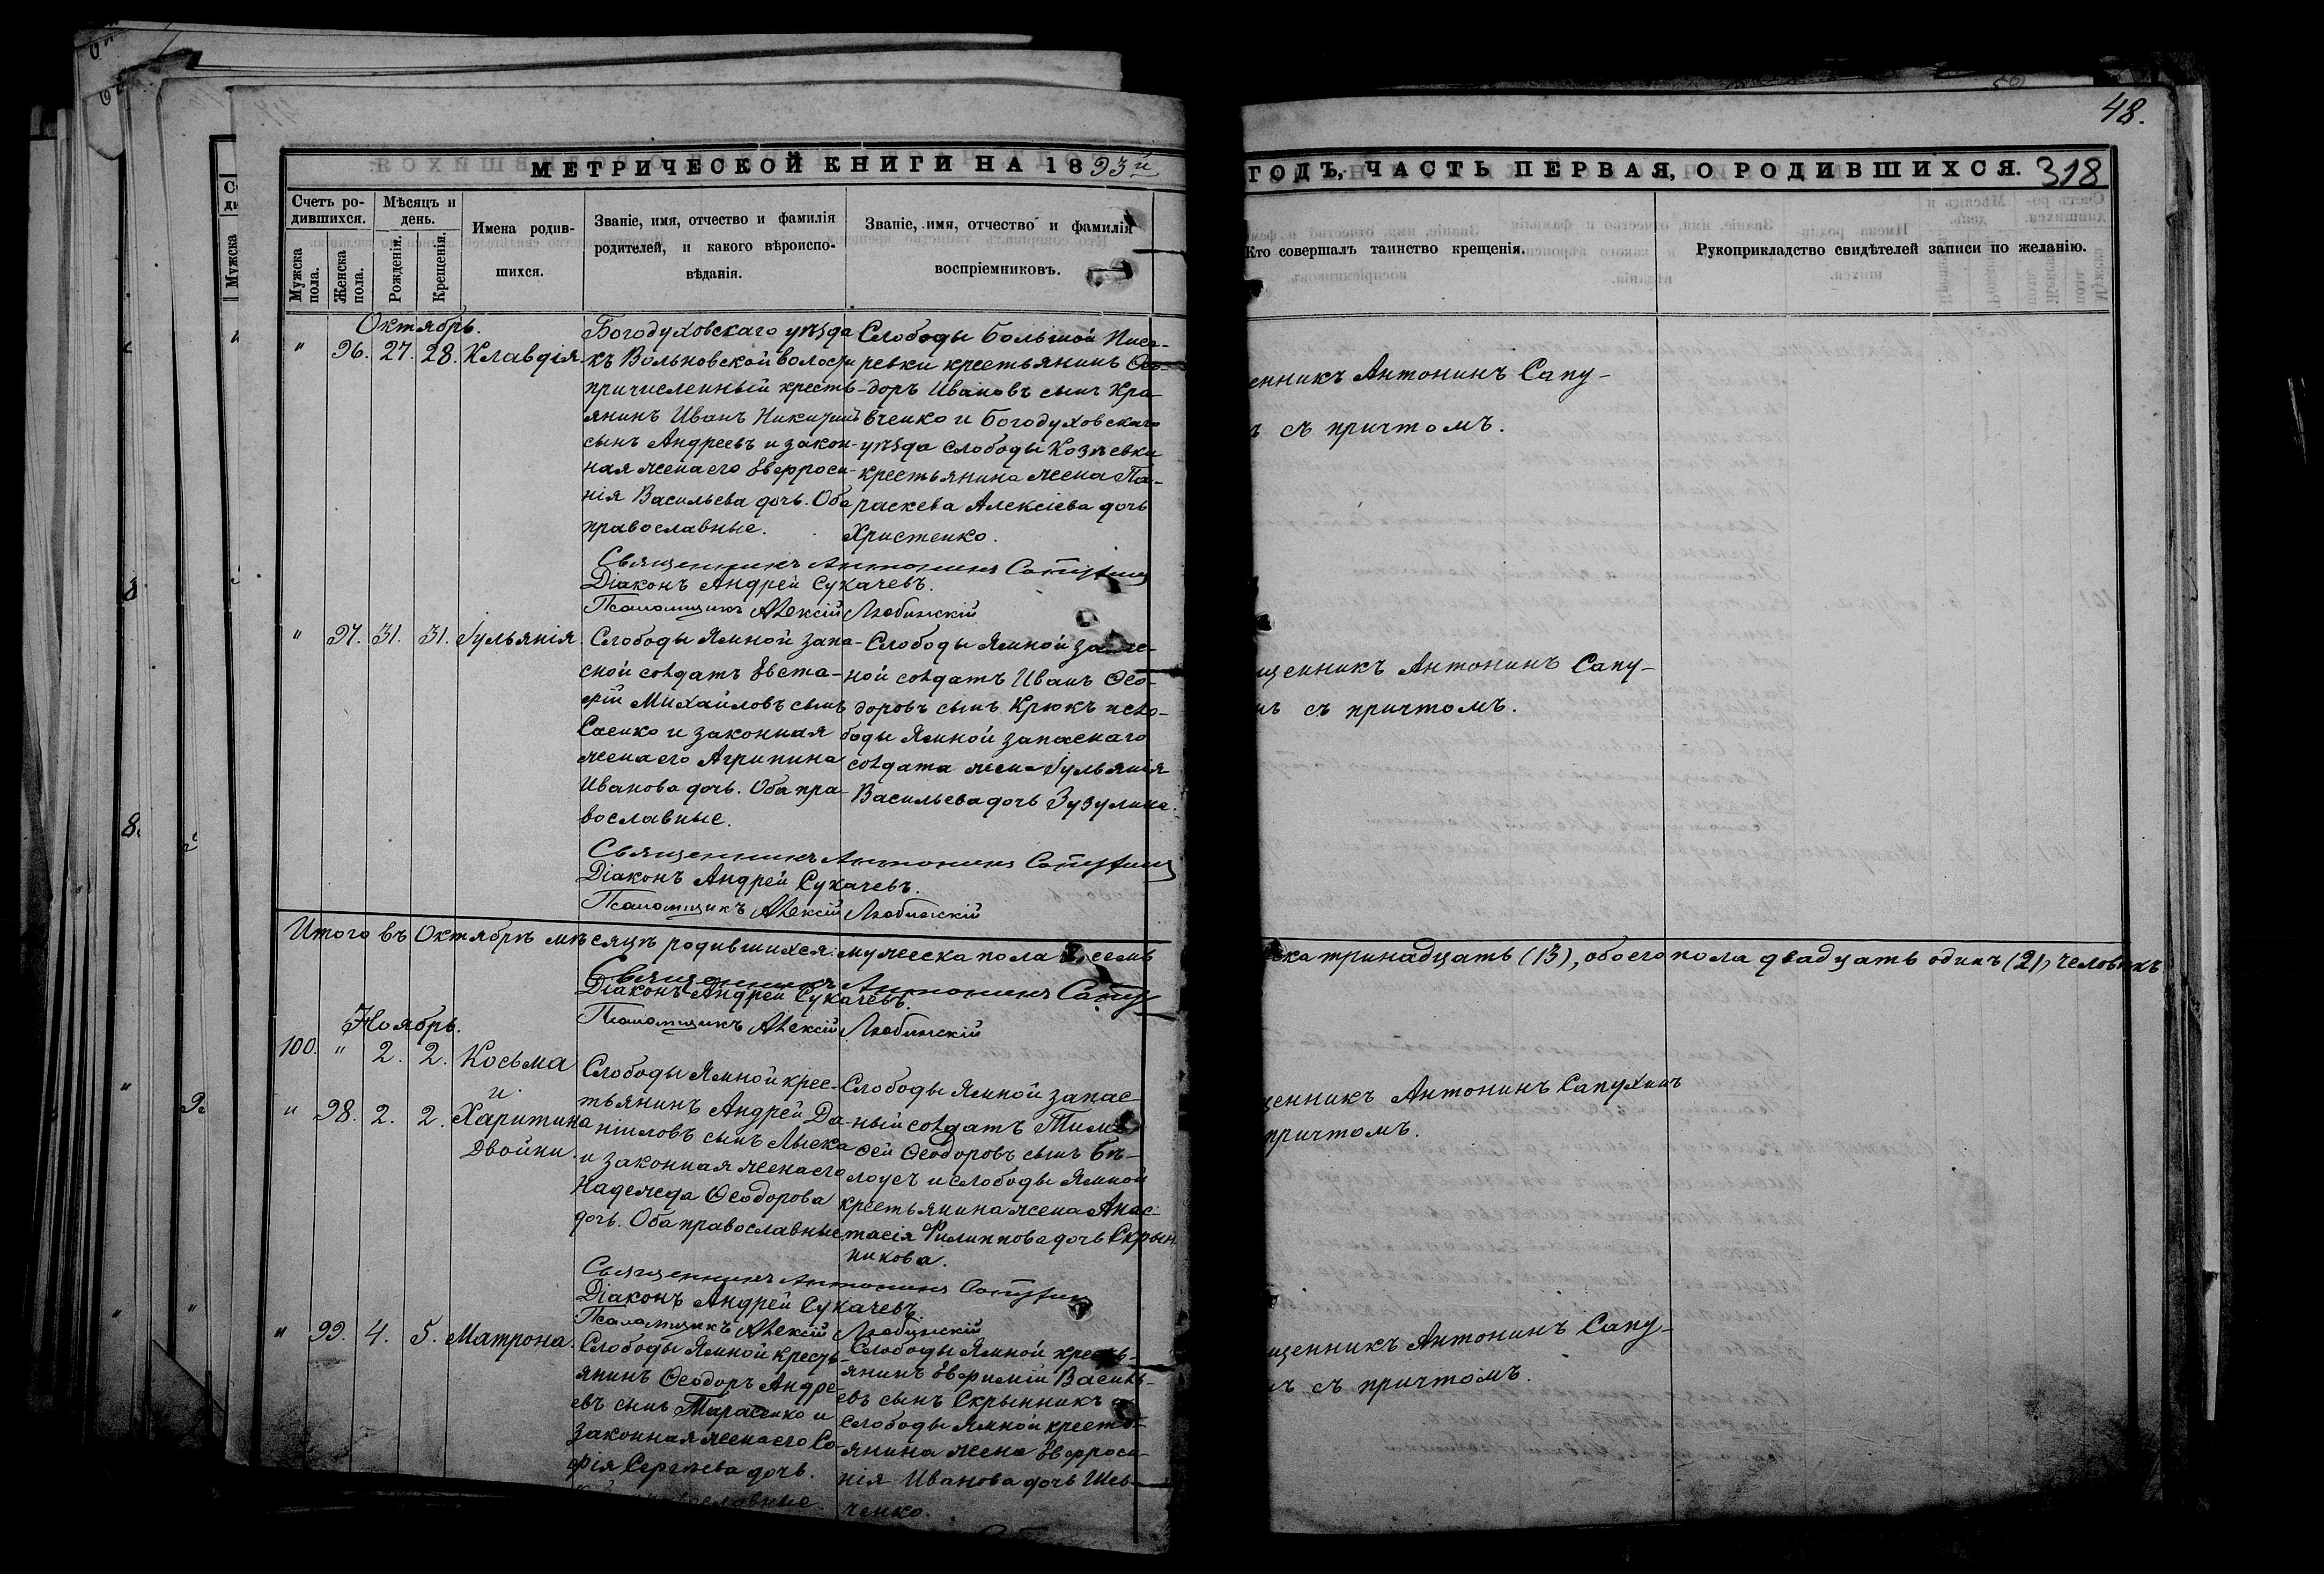 48.
МЕТРИЧЕСКОЙ КНИГИ НА 1893й
ГОДЪ, ЧАСТЬ ПЕРВАЯ, О РОДИВШИХСЯ. 318
Счетъ ро-
дившихся.
Мужска
пола.
Женска
пола.
Мѣсяцъ и
день.
Рожденія.
Крещенія.
Имена родив-
шихся.
Званіе, имя, отчество и фамилія
родителей, и какого вѣроиспо-
вѣданія.
Званіе, имя, отчество и фамилія
воспріемниковъ.
Кто совершалъ таинство крещенія.
Рукоприкладство свидѣтелей записи по желанію.
Октябрь.
" 96. 27. 28. Клавдія.
Богодуховскаго уѣзда
къ Вольновской волости
причисленный кресть-
янинъ Иванъ Никитинъ
сынъ Андреевъ и закон-
ная жена его Евфроси-
нія Васильева дочь. Оба
православные.
Слободы Большой Писа-
ревки крестьянинъ Ѳео-
доръ Ивановъ сынъ Кра-
вченко и Богодуховскаго
уѣзда слободы Козѣевки
крестьянина жена Па-
раскева Алексіева дочь
Христенко.
енникъ Антонинъ Сапу-
съ причтомъ.
Священникъ Антонинъ Сапухин
Діаконъ Андрей Сукачевъ.
Псаломщикъ Алексій Любинскій
" 97. 31. 31. Іульянія.
Слободы Ямной запа-
сной солдатъ Евста-
фій Михайловъ сынъ
Саенко и законная
жена его Агрипина
Иванова дочь. Оба пра-
вославные.
Слободы Ямной запас-
ной солдатъ Иванъ Ѳео-
доровъ сынъ Крюкъ и сло-
боды Ямной запаснаго
солдата жена Іульянія
Васильева дочь Зузулина.
щенникъ Антонинъ Сапу-
нъ съ причтомъ.
Священникъ Антонинъ Сапухин
Діаконъ Андрей Сукачевъ.
Псаломщикъ Алексій Любинскій
Итого въ Октябрѣ мѣсяцѣ родившихся: мужеска пола 8, семь
ска тринадцать (13), обоего пола двадцать одинъ (21) человѣкъ
Священникъ Антонинъ Сапу
Діаконъ Андрей Сукачевъ.
Псаломщикъ Алексій Любинскій
Ноябрь.
100. " 2. 2. Косьма
и
" 98. 2. 2. Харитина
двойни.
Слободы Ямной крес-
тьянинъ Андрей Да-
ніиловъ сынъ Лыска
и законная жена его
Надежда Ѳеодорова
дочь. Оба православные
Слободы Ямной запас
ный солдатъ Тимо-
ѳей Ѳеодоровъ сынъ Бѣ-
лоусъ и слободы Ямной
крестьянина жена Анас-
тасія Филиппова дочь Скрын
никова.
щенникъ Антонинъ Сапухинъ
причтомъ.
Священникъ Антонинъ Сапухин
Діаконъ Андрей Сукачевъ
Псаломщикъ Алексій Любинскій
" 99. 4. 5. Матрона.
Слободы Ямной кресть-
янинъ Ѳеодоръ Андре-
евъ сынъ Тарасенко и
законная жена его Со-
фія Сергѣева дочь.
Слободы Ямной кресть-
янинъ Евфимій Василь-
евъ сынъ Скрынникъ и
слободы Ямной кресть-
янина жена Евфроси-
нія Иванова дочь Шев-
ченко.
щенникъ Антонинъ Сапу-
съ причтомъ.